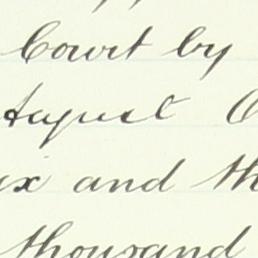 Court by
August
and
thousand